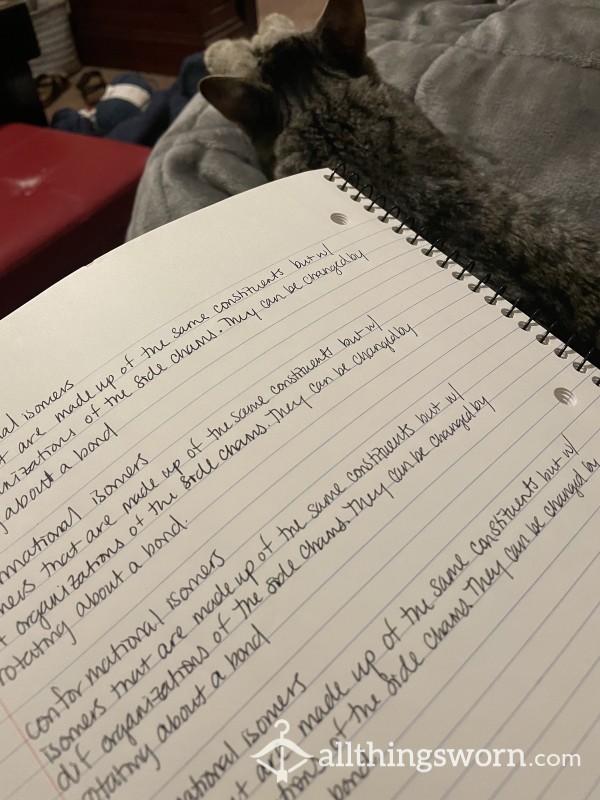 al isomers
are made up of the same constituents but w/
anizations of the side chains. They can be changed by
about a bond
rmational isomers
mers that are made up of the same constituents but w/
organizations of the side chains. They can be changed by
rotating about a bond.
conformational isomers
isomers that are made up of the same constituents but w/
dif organizations of the side chains. They can be changed by
rotating about a bond
mational isomers
at are made up of the same constituents but w/
tions of the side chains. They can be changed by
bond
allthingsworn.com